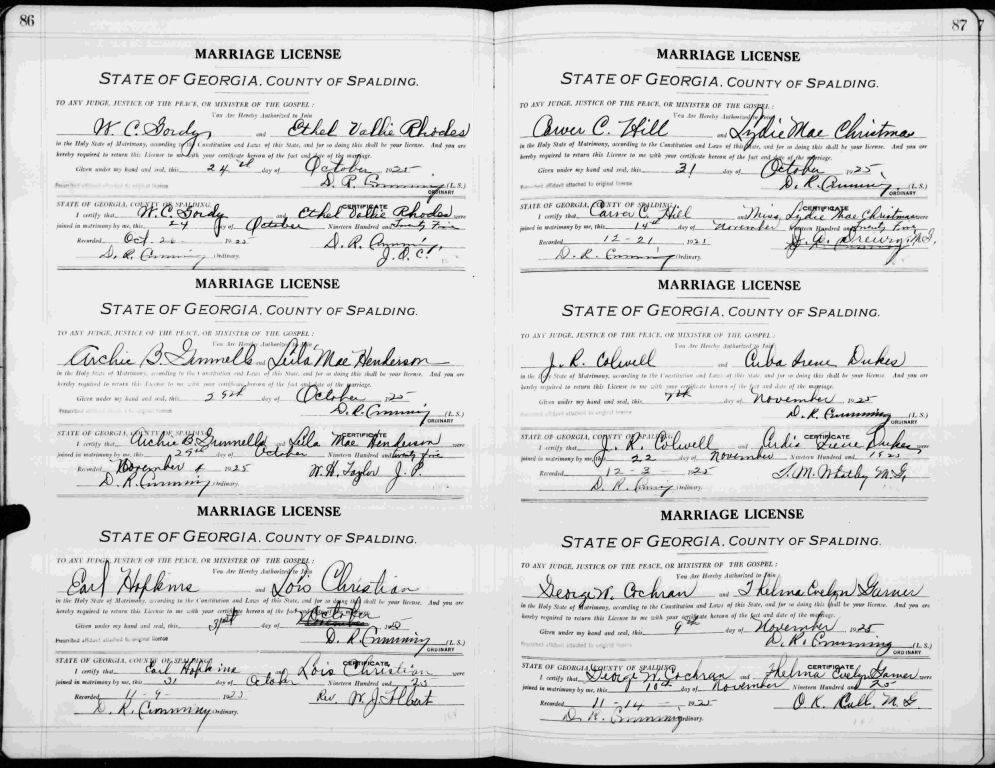 86
MARRIAGE LICENSE
STATE OF GEORGIA, COUNTY OF SPALDING.
TO ANY JUDGE, JUSTICE OF THE PEACE, OR MINISTER OF THE GOSPEL:
You Are Hereby Authorized to Join
W. C. Gordy and Ethel Vallie Rhodes
in the Holy State of Matrimony, according to the Constitution and Laws of this State, and for so doing this shall be your license. And you are
hereby required to return this License to me with your certificate hereon of the fact and date of the marriage.
Given under my hand and seal, this 24th day of October 1925
D. R. Cumming (L. S.)
Prescribed affidavit attached to original license
ORDINARY
CERTIFICATE
STATE OF GEORGIA, COUNTY OF SPALDING.
I certify that W. C. Gordy and Ethel Vallie Rhodes were
joined in matrimony by me, this 24 day of October Nineteen Hundred and Twenty Five
Recorded Oct. 1925 D. R. Cumming
D. R. Cumming Ordinary. J. O. C.
MARRIAGE LICENSE
STATE OF GEORGIA, COUNTY OF SPALDING.
TO ANY JUDGE, JUSTICE OF THE PEACE, OR MINISTER OF THE GOSPEL:
You Are Hereby Authorized to Join
Archie B. Gunnells and Leila Mae Henderson
in the Holy State of Matrimony, according to the Constitution and Laws of this State, and for so doing this shall be your license. And you are
hereby required to return this License to me with your certificate hereon of the fact and date of the marriage.
Given under my hand and seal, this 29th day of October 1925
D. R. Cumming (L. S.)
Prescribed affidavit attached to original license
ORDINARY
CERTIFICATE
STATE OF GEORGIA, COUNTY OF SPALDING.
I certify that Archie B Gunnells and Leila Mae Henderson were
joined in matrimony by me, this 29th day of October Nineteen Hundred and twenty five
Recorded November 4 1925 W. H. Taylor J. P.
D. R. Cumming Ordinary.
MARRIAGE LICENSE
STATE OF GEORGIA, COUNTY OF SPALDING.
TO ANY JUDGE, JUSTICE OF THE PEACE, OR MINISTER OF THE GOSPEL:
You Are Hereby Authorized to Join
Earl Hopkins and Lois Christian
in the Holy State of Matrimony, according to the Constitution and Laws of this State, and for so doing this shall be your license. And you are
hereby required to return this License to me with your certificate hereon of the fact and date of the marriage.
Given under my hand and seal, this 31st day of October 1925
D. R. Cumming (L. S.)
Prescribed affidavit attached to original license
ORDINARY
CERTIFICATE
STATE OF GEORGIA, COUNTY OF SPALDING.
I certify that Earl Hopkins and Lois Christian were
joined in matrimony by me, this 31 day of October Nineteen Hundred and 25
Recorded 11-9- 1925 Rev. W. J.
D. R. Cumming Ordinary.
87
MARRIAGE LICENSE
STATE OF GEORGIA, COUNTY OF SPALDING.
TO ANY JUDGE, JUSTICE OF THE PEACE, OR MINISTER OF THE GOSPEL:
You Are Hereby Authorized to Join
Carver C. Hill and Lydie Mae Christmas
in the Holy State of Matrimony, according to the Constitution and Laws of this State, and for so doing this shall be your license. And you are
hereby required to return this License to me with your certificate hereon of the fact and date of the marriage.
Given under my hand and seal, this 31 day of October 1925.
D. R. Cumming (L. S.)
Prescribed affidavit attached to original license
ORDINARY
CERTIFICATE
STATE OF GEORGIA, COUNTY OF SPALDING.
I certify that Carver C. Hill and Miss Lydie Mae Christmas were
joined in matrimony by me, this 14th day of November Nineteen Hundred and twenty five
Recorded 12-21 J. A. Drewry, M. G.
D. R. Cumming Ordinary.
MARRIAGE LICENSE
STATE OF GEORGIA, COUNTY OF SPALDING.
TO ANY JUDGE, JUSTICE OF THE PEACE, OR MINISTER OF THE GOSPEL:
You Are Hereby Authorized to Join
J. R. Colwell and Irene Dukes
in the Holy State of Matrimony, according to the Constitution and Laws of this State, and for so doing this shall be your license. And you are
hereby required to return this License to me with your certificate hereon of the fact and date of the marriage.
Given under my hand and seal, this 7th day of November 1925
D. R. Cumming (L. S.)
Prescribed affidavit attached to original license
ORDINARY
CERTIFICATE
STATE OF GEORGIA, COUNTY OF SPALDING.
I certify that J. R. Colwell and Irene Dukes were
joined in matrimony by me, this 22 day of November Nineteen Hundred and 1925
Recorded 12-3- 1925 M. G.
D. R. Cumming Ordinary.
MARRIAGE LICENSE
STATE OF GEORGIA, COUNTY OF SPALDING.
TO ANY JUDGE, JUSTICE OF THE PEACE, OR MINISTER OF THE GOSPEL:
You Are Hereby Authorized to Join
George W. Cochran and Thelma Evelyn Garner
in the Holy State of Matrimony, according to the Constitution and Laws of this State, and for so doing this shall be your license. And you are
hereby required to return this License to me with your certificate hereon of the fact and date of the marriage.
Given under my hand and seal, this 9th day of November 1925
D. R. Cumming (L. S.)
Prescribed affidavit attached to original license
ORDINARY
CERTIFICATE
STATE OF GEORGIA, COUNTY OF SPALDING.
I certify that George W. Cochran and Thelma Evelyn Garner were
joined in matrimony by me, this 10th day of November Nineteen Hundred and 25
Recorded 11-14- 1925 O. K. Cull, M. G.
D. R. Cumming Ordinary.